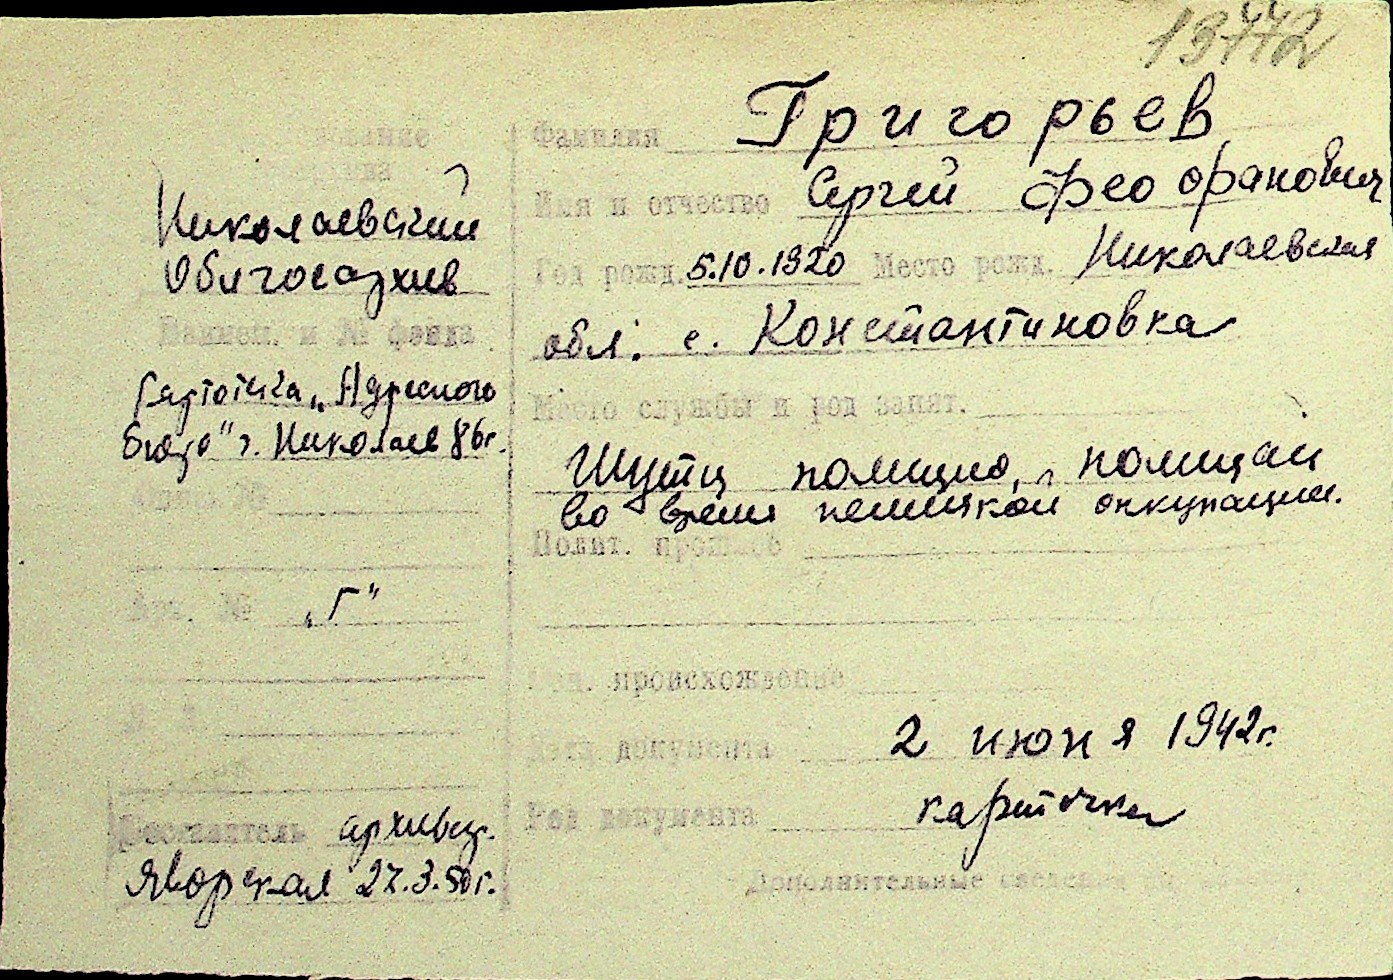 13772
Фамилия Григорьев
Имя и отчество Сергей Феофранович
Год рожд. 5.10.1920 Место рожд. Николаевская
обл. с. Константиновка
Место службы и род занят.
Шутц полицию, полицай
во время немецкой оккупации.
Полит. прошлое
происхождение
Дата документа 2 июня 1942г.
Род документа карточка
Дополнительные сведения
Николаевский
Облгосархив
Наимен. и № фонда
Картотека „Адресного
бюро" г. Николаев 86г.
Арх. № „Г"
Составитель архивис.
Яворская 27.3.50г.